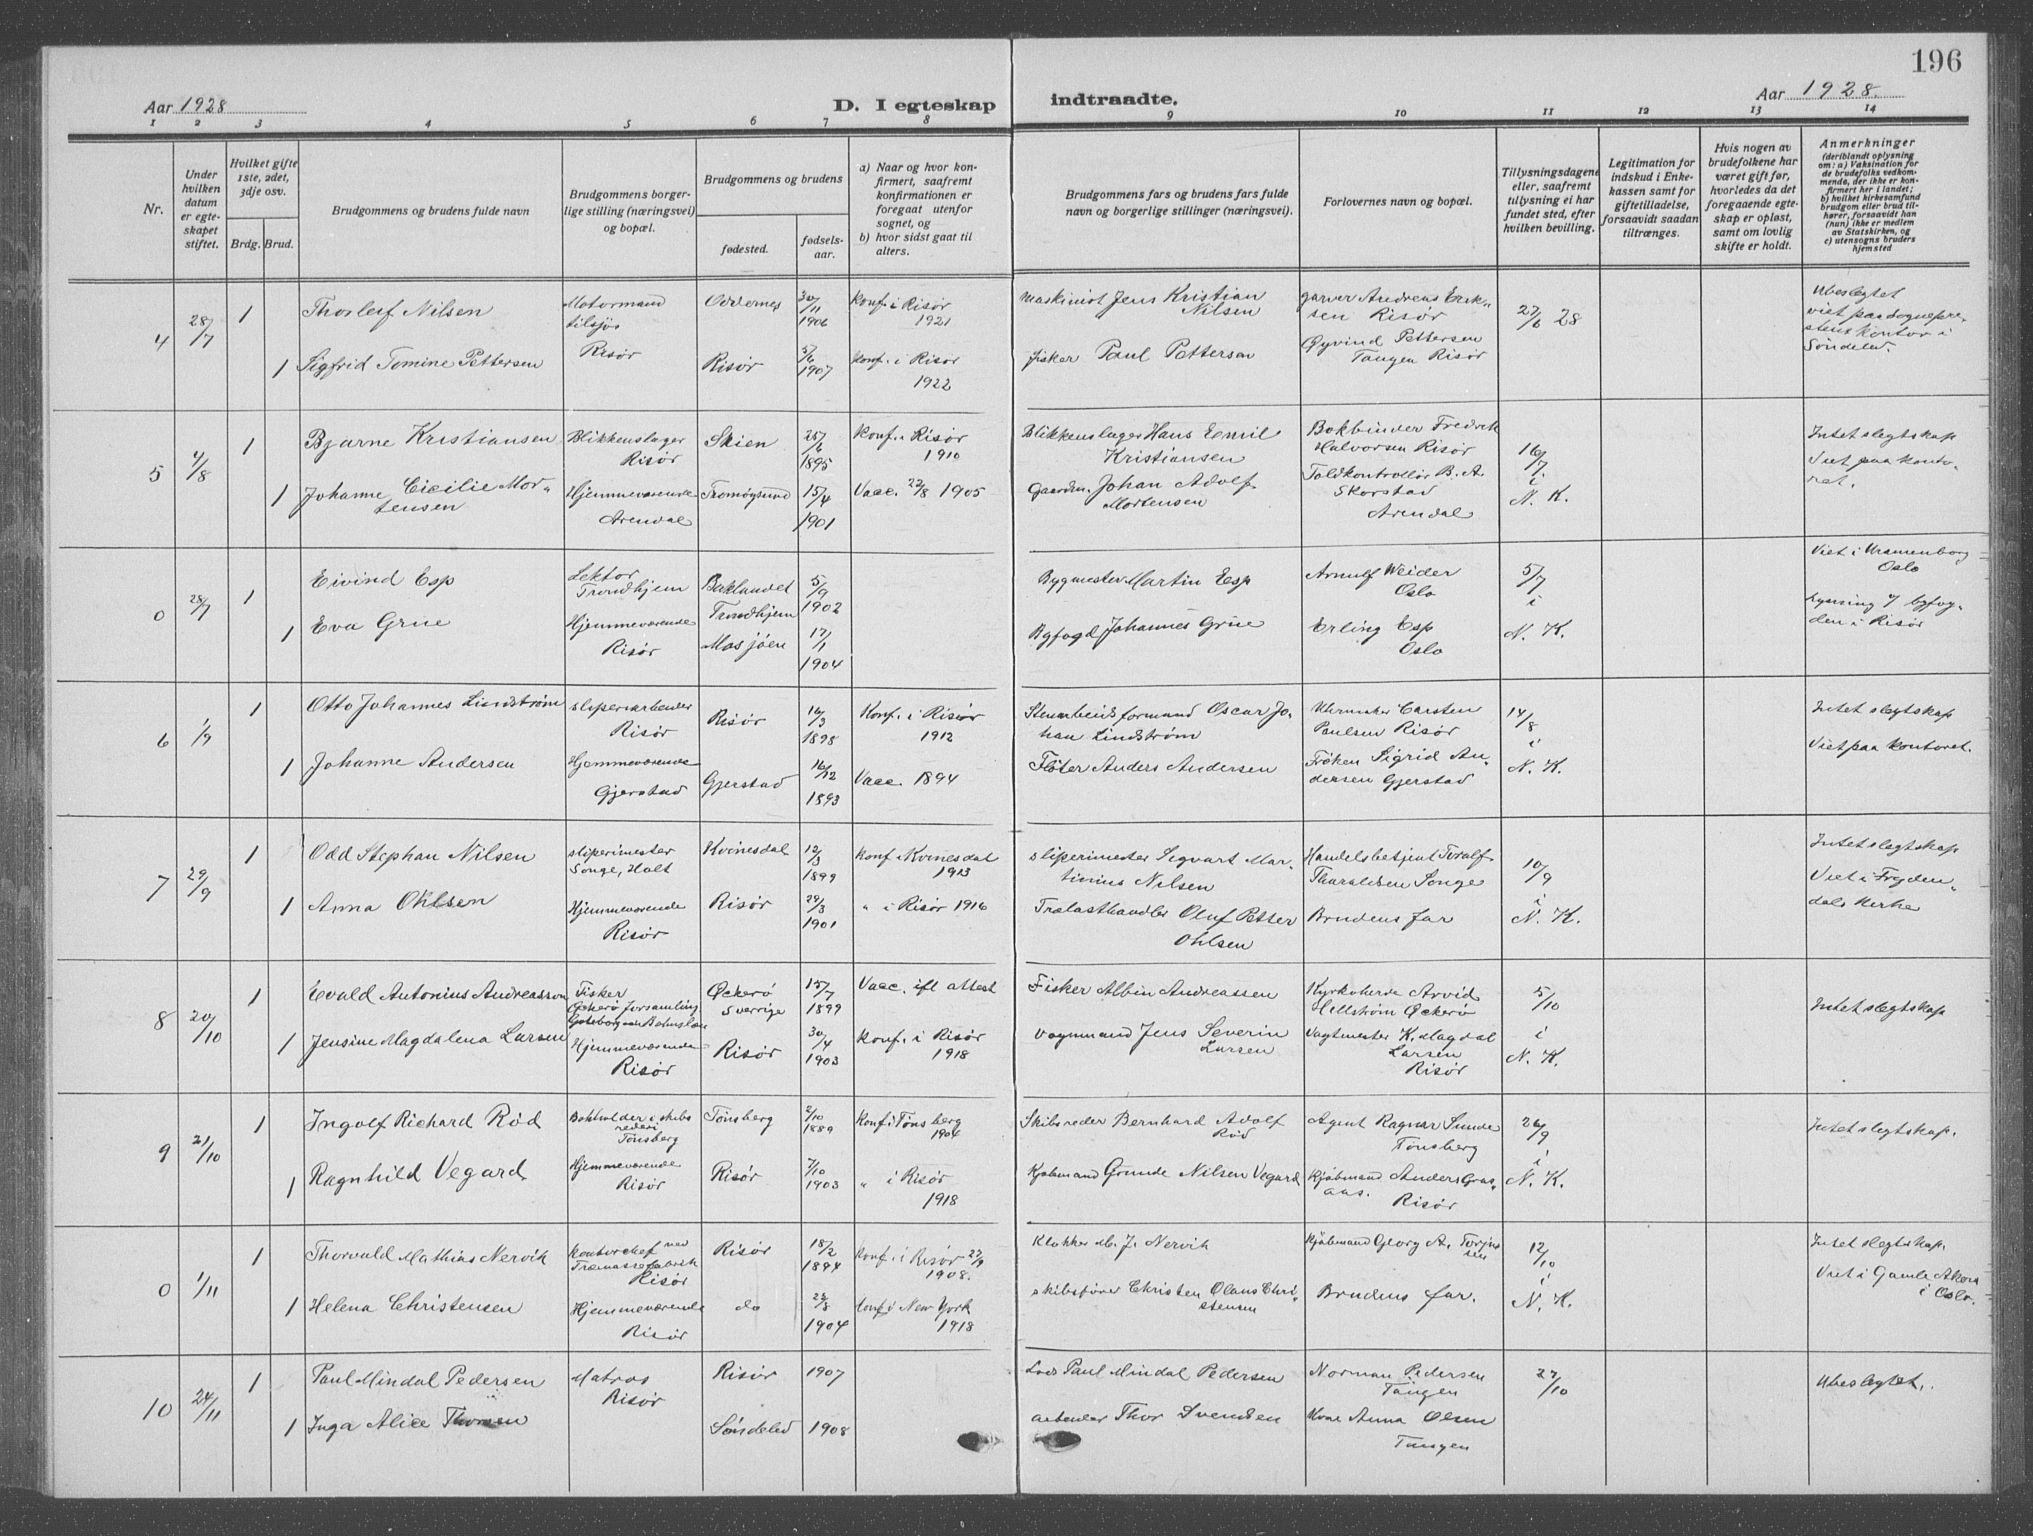 196
Aar 1928
D. I egteskap
indtraadte.
Aar 1928.
1 2 3 4 5 6 7 8 9 10 11 12 13 14
Nr.
Under hvilken datum er egteskapet stiftet.
Hvilket gifte 1ste, 2det, 3dje osv.
Brdg. Brud.
Brudgommens og brudens fulde navn
Brudgommens borgerlige stilling (næringsvei) og bopæl.
Brudgommens og brudens
fødested.
fødselsaar.
a) Naar og hvor konfirmert, saafremt konfirmationen er foregaat utenfor sognet, og
b) hvor sidst gaat til alters.
Brudgommens fars og brudens fars fulde navn og borgerlige stillinger (næringsvei).
Forlovernes navn og bopæl.
Tillysningsdagene eller, saafremt tillysning ei har fundet sted, efter hvilken bevilling.
Legitimation for indskud i Enkekassen samt for giftetilladelse, forsaavidt saadan tiltrænges.
Hvis nogen av brudefolkene har været gift før, hvorledes da det foregaaende egteskap er opløst, samt om lovlig skifte er holdt.
Anmerkninger
(deriblandt oplysning om: a) Vaksination for de brudefolks vedkommende, der ikke er konfirmert her i landet; b) hvilket kirkesamfund brudgom eller brud tilhører, forsaavidt han (hun) ikke er medlem av Statskirken, og c) utensogns bruders hjemsted
4
28/7
1
Thorleif Nilsen
Motormand
tilsjøs
Risør
Oddernes
30/11
1906
Konf. i Risør
1921
Maskinist Jens Kristian
Nilsen
garver Andreas Erik-
sen Risør
27/6 28
Ubeslegtet
viet paa sognepre-
stens kontor i
Søndeled.
1
Sigfrid Tomine Pettersen
Risør
5/6
1907
Konf. i Risør
1922
fisker Paul Pettersen
Øyvind Pettersen
Tangen Risør
5
4/8
1
Bjarne Kristiansen
Blikkenslager
Risør
Skien
25/6
1895
Konf. i Risør
1910
Blikkenslager Hans Emil
Kristiansen
Bokbinder Fredrik
Halvorsen Risør
16/7
i
N. K.
Intet slegtskap
Viet paa konto-
ret.
1
Johanne Cicilie Mor-
tensen
Hjemmeværende
Arendal
Tromøysund
15/4
1901
Vacc. 22/8 1905
Gaardm. Johan Adolf
Mortensen
Toldkontrollør B. A.
Skorstad
Arendal
0
28/7
1
Eivind Esp
Lektor
Trondhjem
Baklandet
Trondhjem
5/9
1902
Bygmester Martin Esp
Arnulf Weider
Oslo
5/7
i
N. K.
Viet i Uranienborg
Oslo
Lysning v/ byfog-
den i Risør
1
Eva Grüe
Hjemmeværende
Risør
Mosjøen
17/1
1904
Byfogd Johannes Grüe
Erling Esp
Oslo
6
1/9
1
Otto Johannes Lindstrøm
sliperiarbeider
Risør
Risør
16/3
1898
Konf. i Risør
1912
Stenarbeids formand Oscar Jo-
han Lindstrøm
Uhrmaker Carsten
Paulsen Risør
14/8
i
N. K.
Intet slegtskap
Viet paa kontoret.
1
Johanne Andersen
Hjemmeværende
Gjerstad
Gjerstad
16/12
1893
Vacc. 1894
Fløter Anders Andersen
Frøken Sigrid An-
dersen Gjerstad
7
29/9
1
Odd Stephan Nilsen
sliperimester
Songe, Holt
Kvinesdal
12/3
1899
Konf. Kvinesdal
1913
sliperimester Sigvart Mar-
tinius Nilsen
Handelsbetjent Toralf
Tharaldsen Songe
10/9
i
N. K.
Intet slegtskap
Viet i Fryden-
dals Kirke
1
Anna Ohlsen
Hjemmeværende
Risør
Risør
29/3
1901
" i Risør 1916
Trælasthandler Oluf Petter
Ohlsen
Brudens far
8
20/10
1
Evald Antonius Andreasson
Fisker
Øckerø forsamling
Gøteborg och Bohuslän
Øckerø
Sverrige
15/7
1899
Vacc. ifl attest
Fisker Albin Andreassen
Kyrkoherde Arvid
Hellstrøm Øckerø
5/10
i
N. K.
Intet slegtskap
1
Jensine Magdalena Larsen
Hjemmeværende
Risør
Risør
30/4
1903
Konf. i Risør
1918
Vognmand Jens Severin
Larsen
Vagtmester K. Magdal
Larsen
Risør
9
21/10
1
Ingolf Richard Rød
Bokholder i skibs
rederi
Tønsberg
Tønsberg
2/10
1889
Konf i Tønsberg
1904
Skibsreder Bernhard Adolf
Rød
Agent Ragnar Sunde
Tønsberg
26/9
i
N. K.
Intet slegtskap.
1
Ragnhild Vegard
Hjemmeværende
Risør
Risør
7/10
1903
" i Risør
1918
Kjøbmand Gunde Nilsen Vegard
Kjøbmand Anders Gras-
aas.
Risør
0
1/11
1
Thorvald Mathias Nervik
Kontorchef ved
Træmassefabrik
Risør
Risør
18/2
1894
Konf. i Risør 27/9
1908.
Klokker M. J. Nervik
Kjøbmand Georg A. Torjus
sen
12/10
i
N. K.
Intet slegtskap.
Viet i Gamle Akers
i Oslo.
1
Helena Christensen
Hjemmeværende
Risør
do
22/8
1904
Konf i New York
1918
skibsfører Christen Olaus Chri-
stensen
Brudens far.
10
24/11
1
Paul Mindal Pedersen
Matros
Risør
Risør
1907
Lods Paul Mindal Pedersen
Norman Pedersen
Tangen
27/10
Ubeslegtet.
1
Inga Alice Thorsen
Søndeled
1908
arbeider Thor Svendsen
Anna Olsen
Tangen